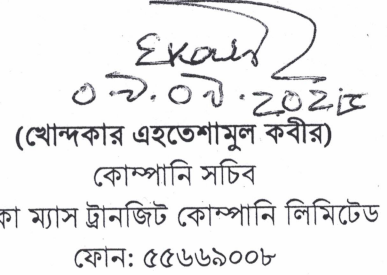 (খোন্দকার এহতেশামুল কবীর)
কোম্পানি সচিব
কা ম্যাস ট্রানজিট কোম্পানি লিমিটেড
ফোন: ৫৫৬৬৯০০৮